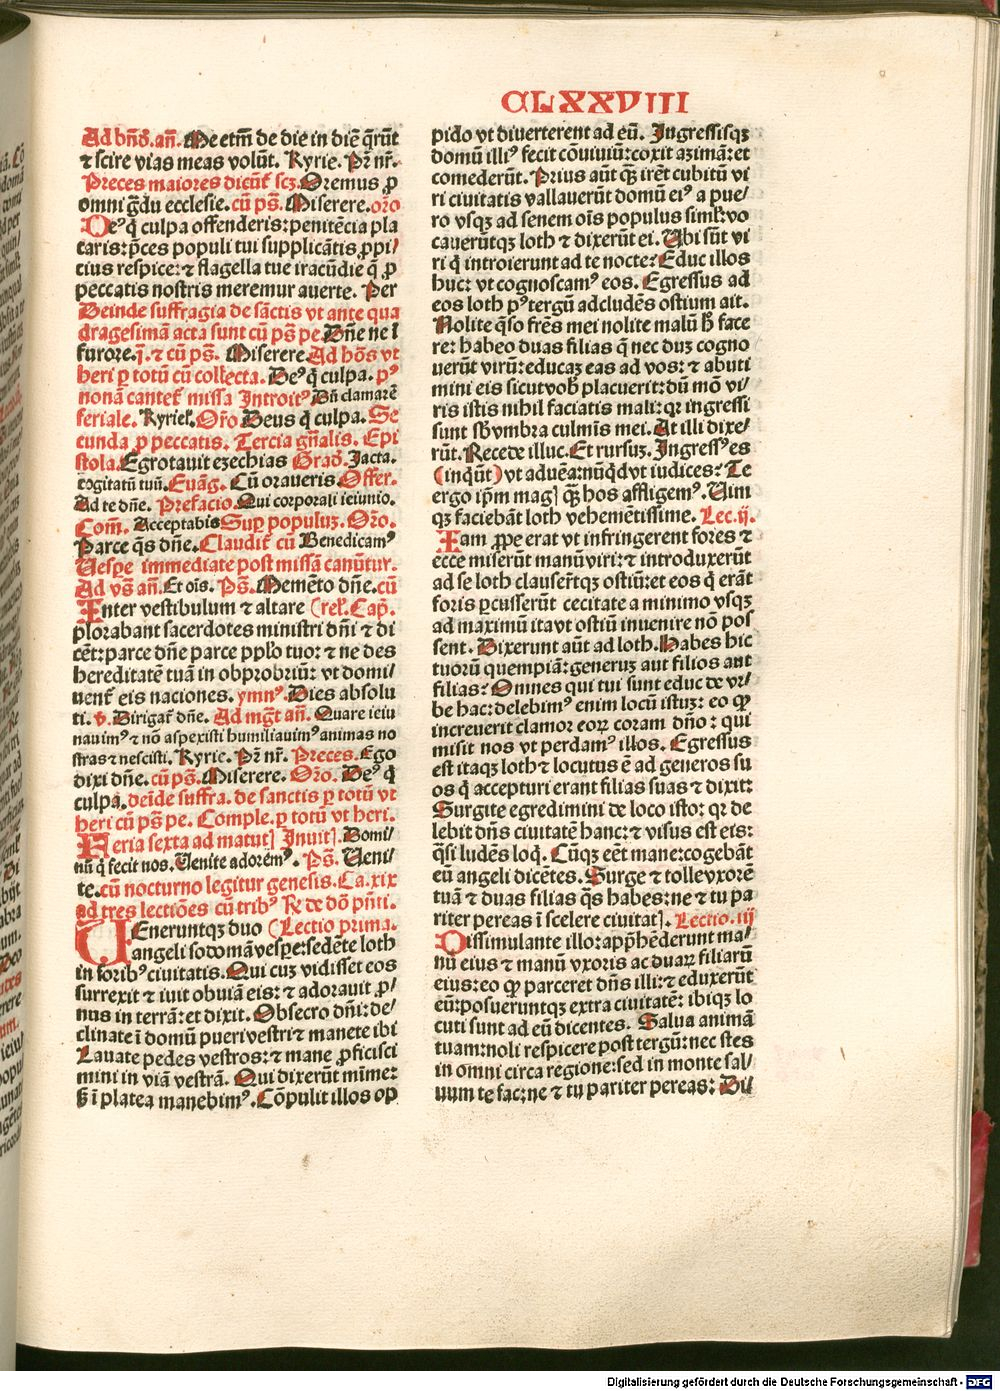 CLXXVIII
Ad bn̄d̄. an̄. Me etm̄ de die in diē q̄rūt
⁊ scire vias meas volūt. Kyrie. Pr̄ nr̄.
Preces maiores dicūt᷑ scꝫ. Oremus ꝓ
omni g̈du ecclesie. cū pṣ̄. Miserere. or̄o
Deꝰ q̇ culpa offenderis: penitēcia pla
caris: p̄ces populi tui supplicātis ꝓpi/
cius respice: ⁊ flagella tue iracūdie q̄ ꝓ
peccatis nostris meremur auerte. Per
Deinde suffragia de sāctis vt ante qua
dragesimā acta sunt cū pṣ̄ pe. Dn̄e ne ī
furore. ī. ⁊ cū pṣ̄. Miserere. Ad hōs vt
heri ꝑ totū cū collecta. Deꝰ q̇ culpa. pꝰ
nonā cantet᷑ missa Introitꝰ Dn̄ clamarē
feriale. Kyriel̄. Or̄o Deus q̇ culpa. Se
cunda ꝓ peccatis. Tercia gn̄alis. Epi
stola. Egrotauit ezechias Grad̄. Jacta.
cogitatū tuū. Euāg. Cū oraueris. Offer.
Ad te dn̄e. Prefacio. Qui corporali ieiunio.
Com̄. Acceptabis Suꝑ populuꝫ. Or̄o.
Parce q̄s dn̄e. Claudit᷑ cū Benedicamꝰ
Vespe immediate post missā canūtur.
Ad vṣ̄ an̄. Et oīs. Pṣ̄. Memēto dn̄e. cū
Inter vestibulum ⁊ altare (rel̄. Cap̄.
plorabant sacerdotes ministri dn̄i ⁊ di
cēt: parce dn̄e parce pplo tuo: ⁊ ne des
hereditatē tuā in obprobriū: vt domi/
nent᷑ eis naciones. ymnꝰ. Dies absolu
ti. v̄. Dirigat᷑ dn̄e. Ad mḡt an̄. Quare ieiu
nauimꝰ ⁊ nō aspexisti humiliauimꝰ animas no
stras ⁊ nescisti. Kyrie. Pr̄ nr̄. Preces. Ego
dixi dn̄e. cū pṣ̄. Miserere. Or̄o. Deꝰ q̇
culpa. deīde suffra. de sanctis ꝑ totū vt
heri cū pṣ̄ pe. Comple. ꝑ totū vt heri.
Feria sexta ad matutꝭ Inuitꝭ. Domi/
nū q̇ fecit nos. Venite adoremꝰ. Pṣ̄. Veni/
te. cū nocturno legitur genesis. Ca. xix
ad tres lectiōes cū tribꝰ ℟ de dō pn̄ti.
VEneruntqꝫ duo (Lectio prima.
angeli sodomā vespe: sedēte loth
in foribꝰ ciuitatis. Qui cuꝫ vidisset eos
surrexit ⁊ iuit obuiā eis: ⁊ adorauit ꝓ/
nus in terrā: et dixit. Obsecro dn̄i: de/
clinate ī domū pueri vestri ⁊ manete ibi
Lauate pedes vestros: ⁊ mane ꝓficisci
mini in viā vestrā. Qui dixerūt mīme:
ꝫ ī platea manebimꝰ. Cōpulit illos op
pido vt diuerterent ad eū. Ingressisqꝫ
domū illiꝰ fecit cōuiuiū: coxit azimā: et
comederūt. Prius aūt q̄ꝫ irēt cubitū vi
ri ciuitatis vallauerūt domū eiꝰ a pue/
ro vsqꝫ ad senem oīs populus siml̄: vo
cauerūtqꝫ loth ⁊ dixerūt ei. Vbi sūt vi
ri q̇ introierunt ad te nocte? Educ illos
huc: vt cognoscamꝰ eos. Egressus ad
eos loth pꝰ tergū adcludēs ostium ait.
Nolite q̄so fr̄es mei nolite malū h̄ face
re: habeo duas filias q̄ nec duꝫ cogno
uerūt virū: educaꝫ eas ad vos: ⁊ abuti
mini eis sicut vob̄ placuerit: dū mō vi/
ris istis nihil faciatis mali: qꝛ ingressi
sunt sb̄ vmbra culmīs mei. At illi dixe/
rūt. Recede illuc. Et rursuꝫ. Ingressꝰ es
(inq̄ūt) vt aduēa: nūq̇d vt iudices? Te
ergo ip̄m magꝭ q̄ꝫ hos affligemꝰ. Vim
qꝫ faciebāt loth vehemētissime. Lec. ij.
Iam ꝓpe erat vt infringerent fores ⁊
ecce miserūt manū viri: ⁊ introduxerūt
ad se loth clauser̄tqꝫ ostiū: et eos q̇ erāt
foris ꝑcusserūt cecitate a minimo vsqꝫ
ad maximū ita vt ostiū inuenire nō pos
sent. Dixerunt aūt ad loth. Habes hic
tuorū quempiā: generuꝫ aut filios aut
filias? Omnes qui tui sunt educ de vr/
be hac: delebimꝰ enim locū istuꝫ: eo ꝙ
increuerit clamor eoꝝ coram dn̄o: qui
misit nos vt perdamꝰ illos. Egressus
est itaqꝫ loth ⁊ locutus ē ad generos su
os q̇ accepturi erant filias suas ⁊ dixit:
Surgite egredimini de loco isto: qꝛ de
lebit dn̄s ciuitatē hanc: ⁊ visus est eis:
q̄si ludēs loq̇. Cūqꝫ eēt mane: cogebāt
eū angeli dicētes. Surge ⁊ tolle vxorē
tuā ⁊ duas filias q̄s habes: ne ⁊ tu pa
riter pereas ī scelere ciuitatꝭ. Lectio. iij
Dissimulante illo: app̄hēderunt ma/
nū eius ⁊ manū vxoris ac duaꝝ filiarū
eius: eo ꝙ parceret dn̄s illi: ⁊ eduxerūt
eū: posueruntqꝫ extra ciuitatē: ibiqꝫ lo
cuti sunt ad eū dicentes. Salua animā
tuam: noli respicere post tergū: nec stes
in omni circa regione: sed in monte sal/
uum te fac: ne ⁊ tu pariter pereas: Di/
Digitalisierung gefördert durch die Deutsche Forschungsgemeinschaft - DFG